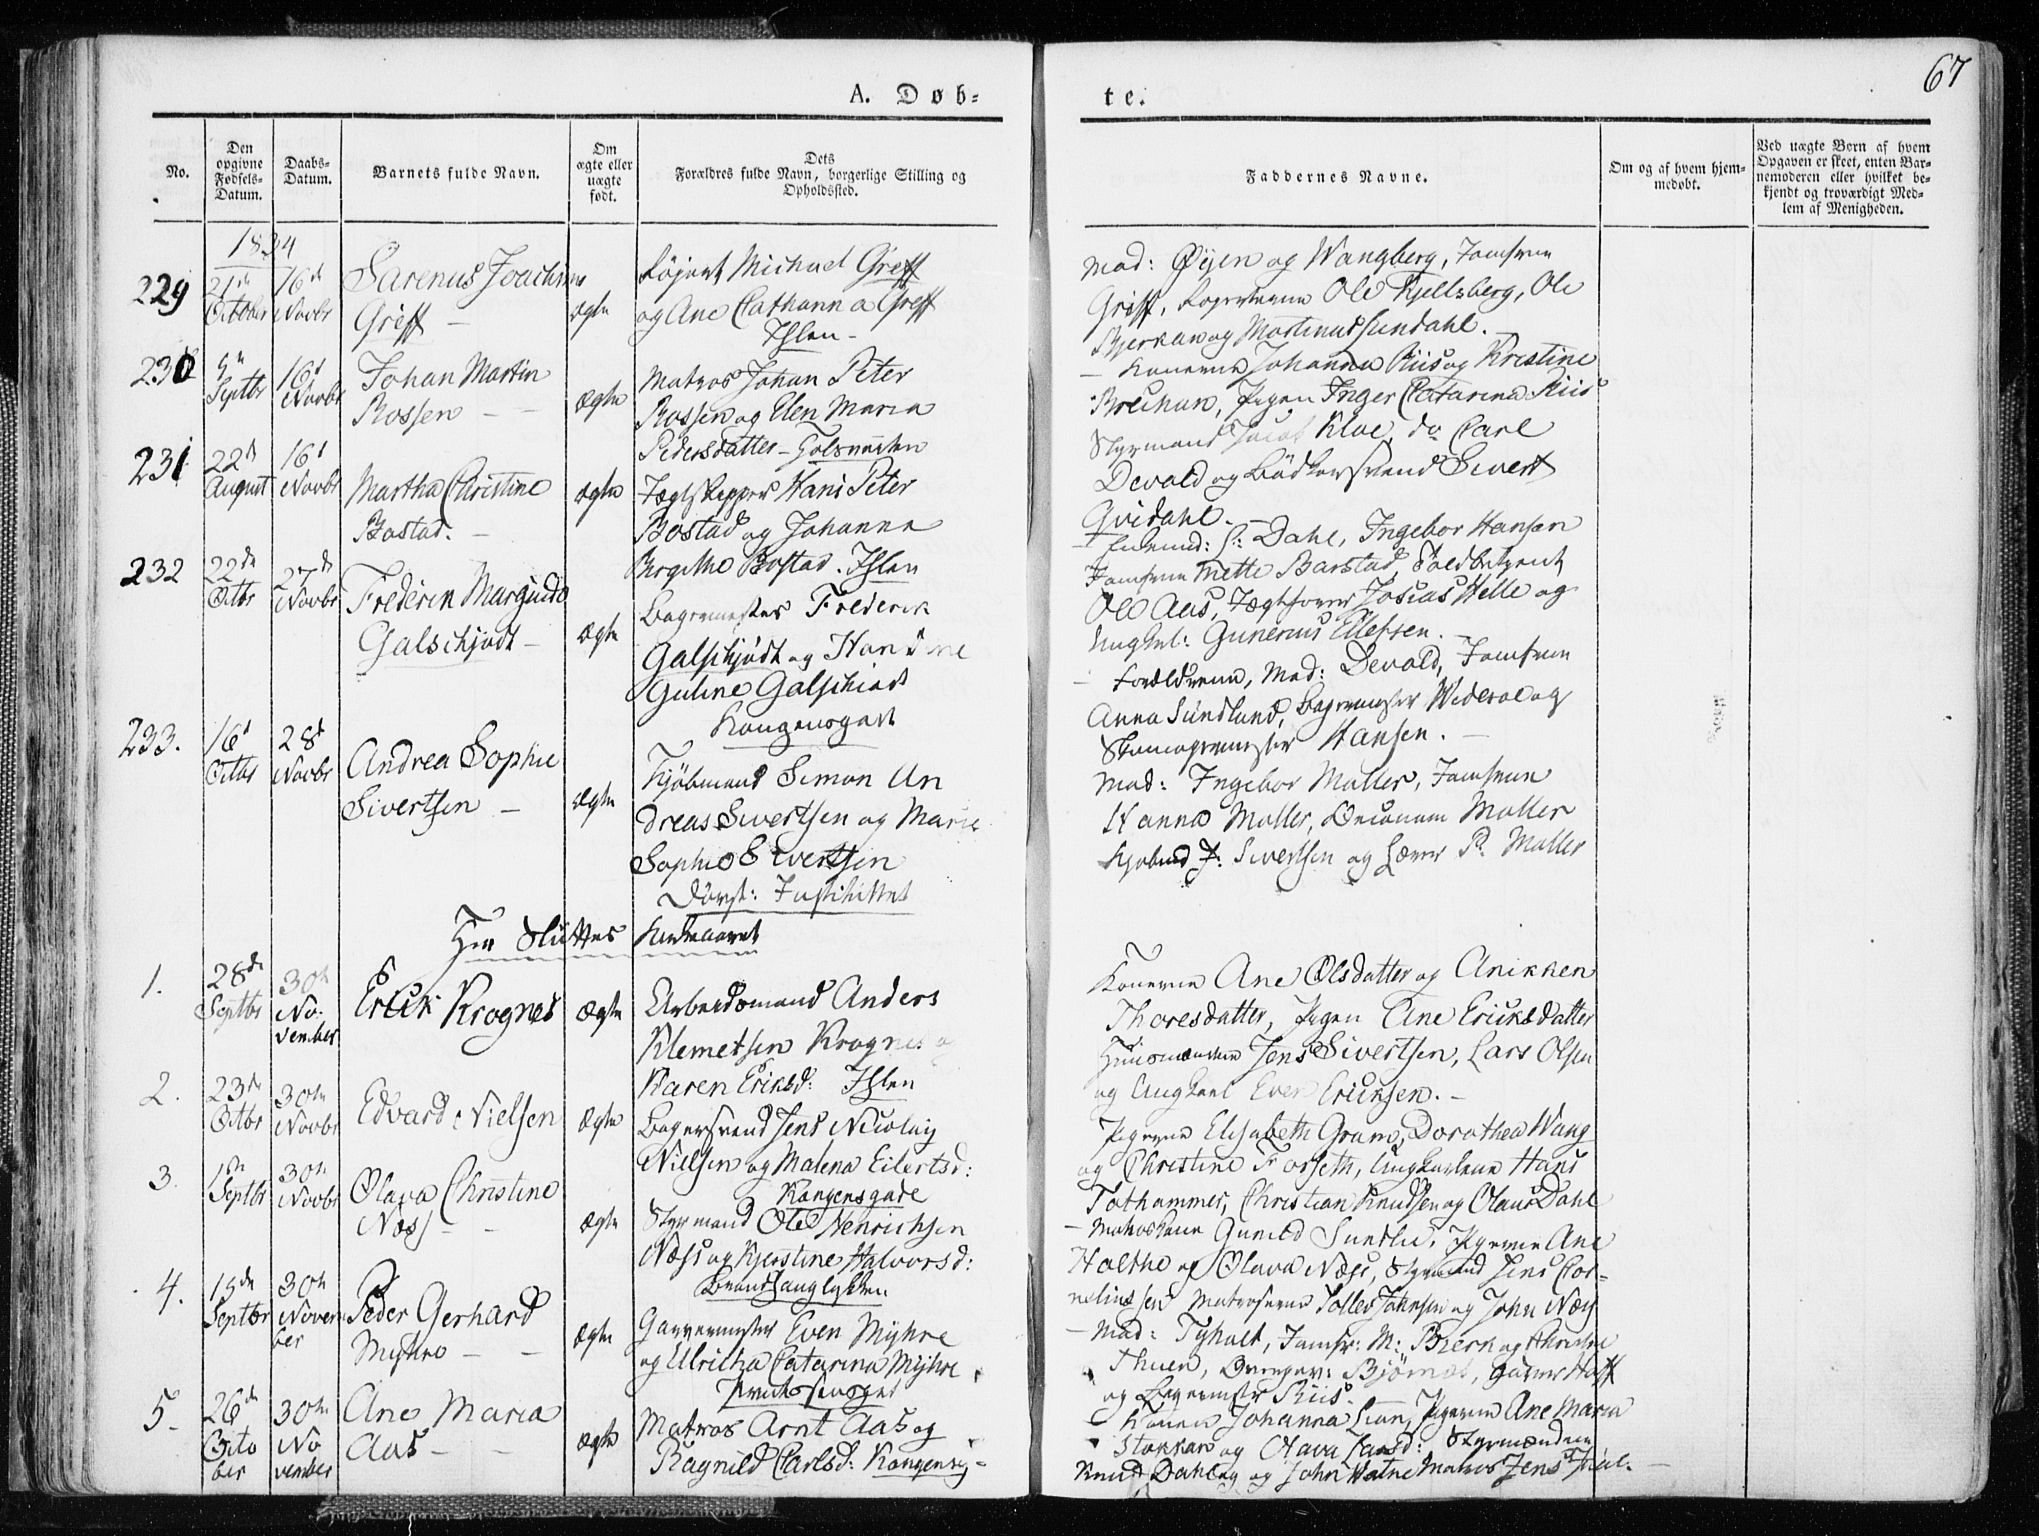 67
A. Døb-
te.
No.
Den opgivne Fødsels-Datum.
Daabs-Datum.
Barnets fulde Navn.
Om ægte eller uægte født.
Dets Forældres fulde Navn, borgerlige Stilling og Opholdssted.
Faddernes Navne.
Om og af hvem hjem-medøbt.
Ved uægte Børn af hvem Opgaven er skeet, enten Bar-nemoderen eller hvilket be-kjendt og troværdigt Med-lem af Menigheden.
1834
229
21de October
16de Novbr
Sarenus Joachim
Greff
ægte
Michael Greff
og Ane Catharina Greff
Ihlen
Mad: Øyen og Wangberg, Jomfrue
Greff, Ole Kjellsberg, Ole
Bjerkan og Martinus Sundahl.
230
5te Septbr
16d Novbr
Johan Martin
Rossen
ægte
Matros Johan Peter
Rossen og Elen Maria
Pedersdatter
Konerne Johanna Riis og Kristine
Pigen Inger Catarina Riis
Styrmand Jacob Kloe, do Carl
Devold og Bødkersvend Sivert
Qvidahl.
231
22d August
16d Novbr
Martha Christine
Bostad.
ægte
Jægtskipper Hans Peter
Bostad og Johanna
Birgithe Bostad. Ihlen
Dahl, Ingebor Hansen
Jomfrue Mette Barstad, Toldbetjent
Ole Aas, Jægtfører Josias Helle og
Ungkal: Gunerius Ellefsen.
232
22de Octbr
27de Novbr
Frederik
Galschjødt
ægte
Bagermester Frederik
Galschjødt og Hansine
Guline Galschiødt
Kongensgade
Forældrene, Mad: Devold, Jomfrue
Anna Sundlund, Bagermester Wideroe og
Skomagermester Hansen.
233.
16d Octbr
28d Novbr
Andrea Sophie
Sivertsen
ægte
Kjøbmand Simon An
dreas Sivertsen og Marie
Sophie Sivertsen
Mad: Ingebor Møller, Jomfrue
Hanna Møller, Møller
Kjøbmd J: Sivertsen og P. Møller
Her Sluttes Kirkeaaret
1.
28de Septbr
30te No-vember
Erick Krognes
ægte
Arbeidsmand Anders
Klemetsen Krognes og
Karen Eriksd: Ihlen
Konerne Ane Olsdatter og Anikken
Thoresdatter, Pigen Ane Ericksdatter
Huusmændene Jens Sivertsen, Lars Olsen
og Ungkarl Even Ericksen.
2.
23de Octbr
30te Novbr
Edvard Nielsen
ægte
Bagersvend Jens Nicolay
Nielsen og Malena Eilertsd:
Kongensgade
Pigerne Elisabeth Gram, Dorothea Wang
og Christine Forseth, Ungkarlene Hans
Tothammer, Christian Knudsen og Olaus Dahl
3.
1te Septbr
30te Novbr
Olava Christine
Næss
ægte
Styrmand Ole Henrichsen
Næss og Kjerstine Halvorsd:
Matroskone Gunild Sundlie, Pigerne Ane
Holthe og Olava Næss, Styrmand Jens Cor-
neliussen Matroserne Tolles Johnsen og John Næss
4.
15de Septbr
30te November
Peder Gerhard
Myhre
ægte
Garvermester Even Myhre
og Ulricha Catarina Myhre
Mad: Tyholt, Jomfr: M: Bierk og Christine
Thuen,
og Bagermester Riis.
5.
26de Octo ber
30te No vember
Ane Maria
Aas
ægte
Matros Arnt Aas og
Ragnild Carlsd: Kongensg-
Konen Johanna Lian, Pigerne Ane Maria
Stokkan og Olava Larsd: Styrmændene
Knud Dahl og John Hatne Matros Jens